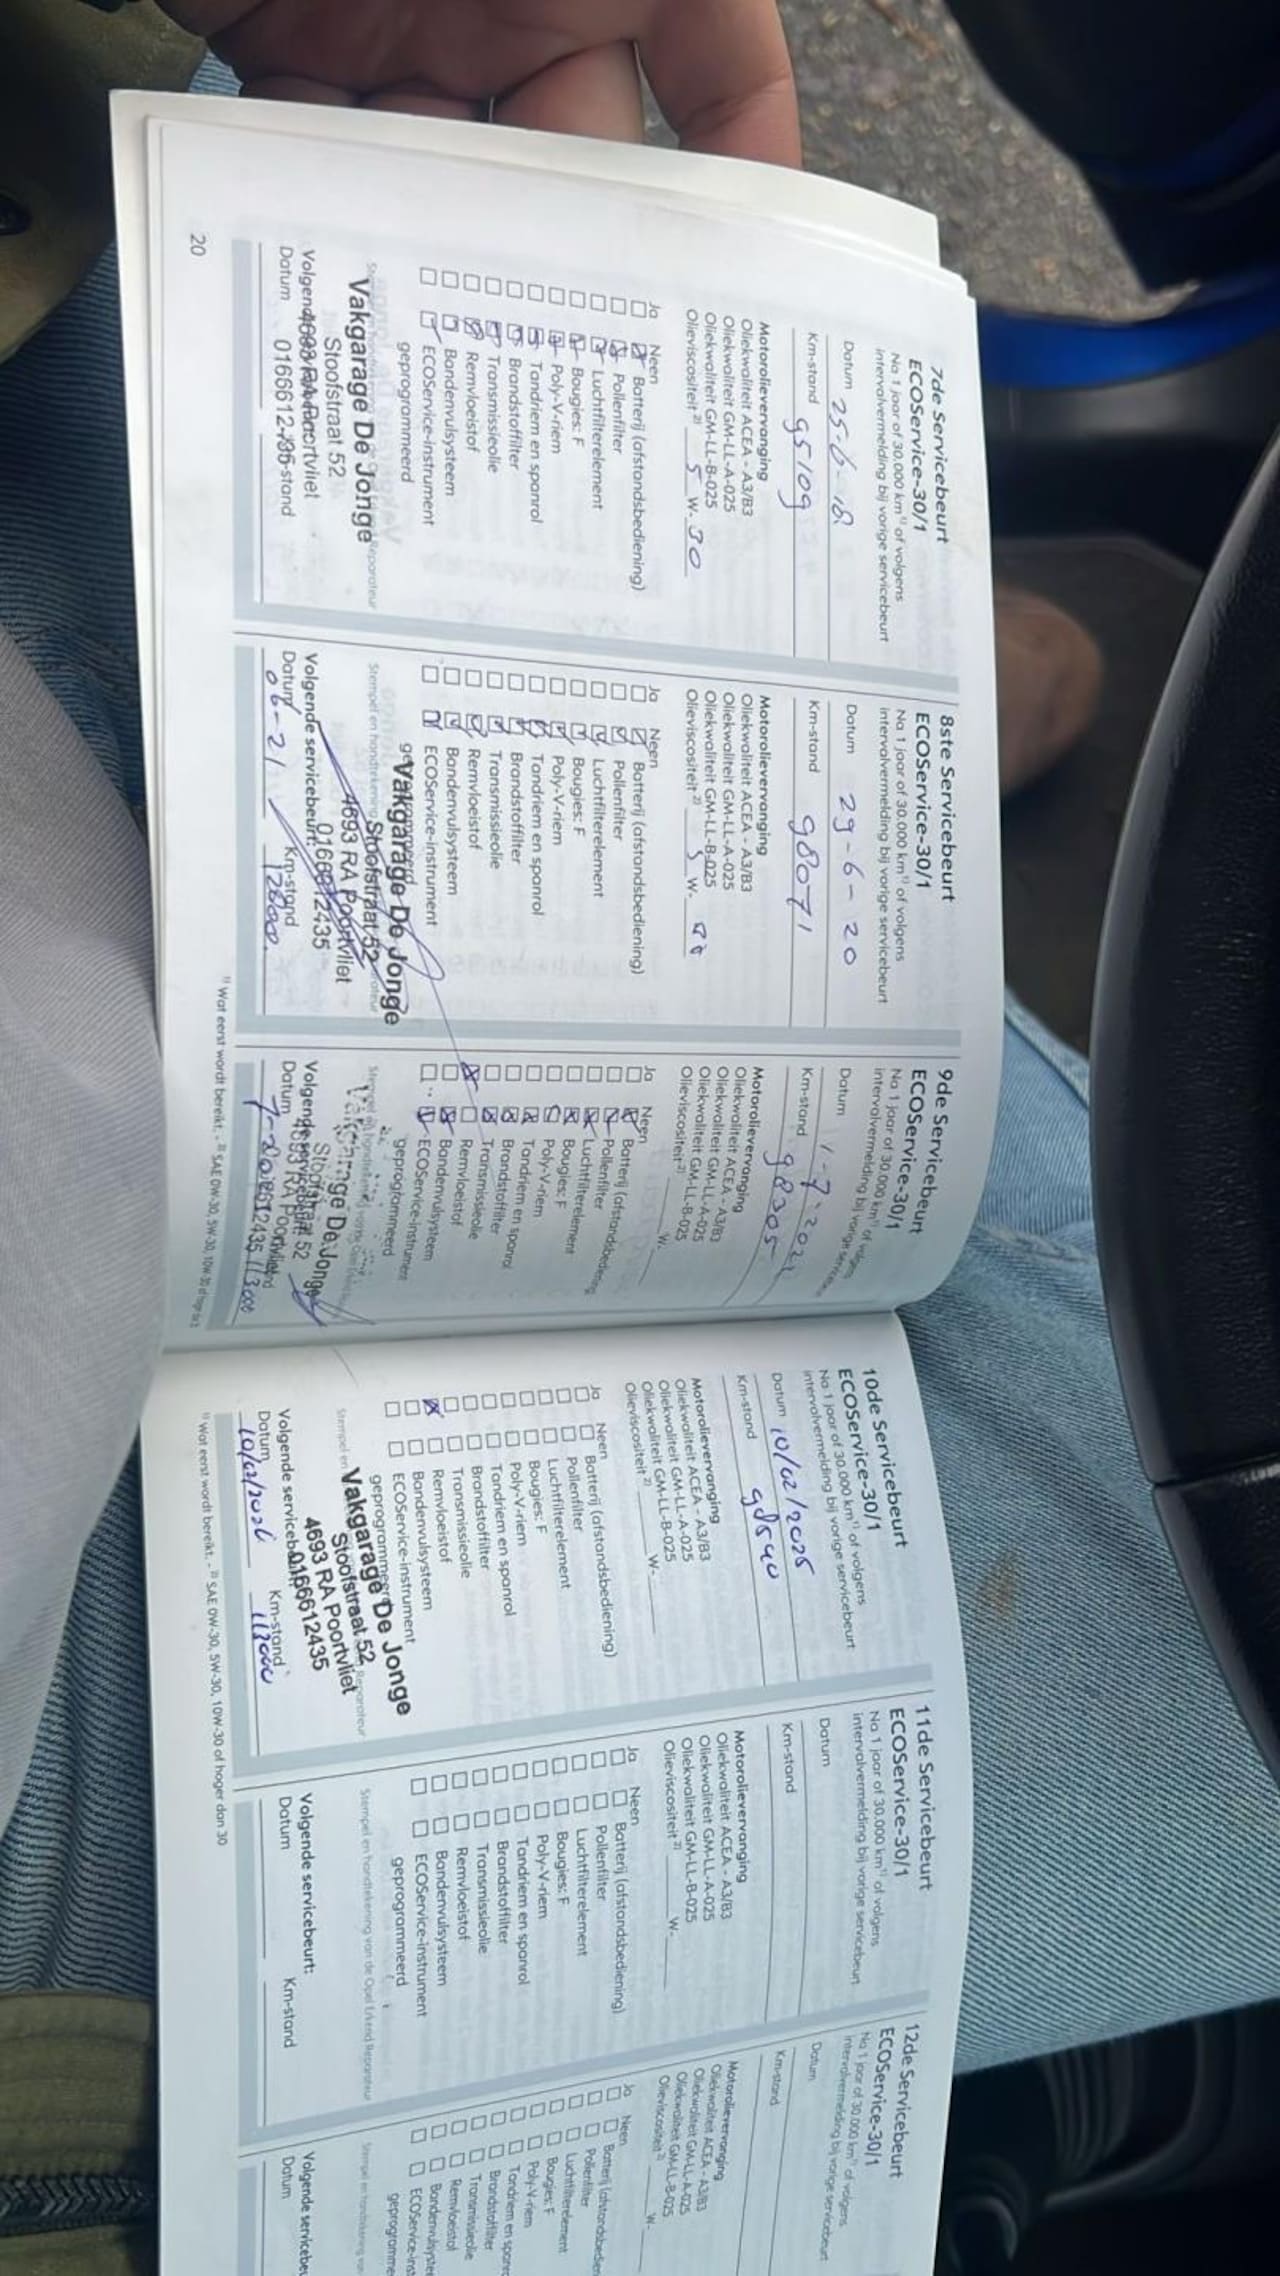 7de Servicebeurt
ECOService-30/1
Na 1 jaar of 30.000 km¹⁾ of volgens
intervalvermelding bij vorige servicebeurt
Datum 25-6-18
Km-stand 95109
Motorolievervanging
Oliekwaliteit ACEA - A3/B3
Oliekwaliteit GM-LL-A-025
Oliekwaliteit GM-LL-B-025
Olieviscositeit²⁾ 5 W- 30
Ja Neen
Batterij (afstandsbediening)
Pollenfilter
Luchtfilterelement
Bougies: F
Poly-V-riem
Tandriem en spanrol
Brandstoffilter
Transmissieolie
Remvloeistof
Bandenvulsysteem
ECOService-instrument
geprogrammeerd
Vakgarage De Jonge
Stoofstraat 52
4693 RA Poortvliet
Datum
20
8ste Servicebeurt
ECOService-30/1
Na 1 jaar of 30.000 km¹⁾ of volgens
intervalvermelding bij vorige servicebeurt
Datum 29-6-20
Km-stand 98071
Motorolievervanging
Oliekwaliteit ACEA - A3/B3
Oliekwaliteit GM-LL-A-025
Oliekwaliteit GM-LL-B-025
Olieviscositeit²⁾ 5 W-
Ja Neen
Batterij (afstandsbediening)
Pollenfilter
Luchtfilterelement
Bougies: F
Poly-V-riem
Tandriem en spanrol
Brandstoffilter
Transmissieolie
Remvloeistof
Bandenvulsysteem
ECOService-instrument
Vakgarage De Jonge
Stoofstraat 52
4693 RA Poortvliet
0166612435
Volgende servicebeurt:
Datum Km-stand
06-21
¹⁾ Wat eerst wordt bereikt. - ²⁾ SAE 0W-30, 5W-30, 10W-30 of hoger dan 30
9de Servicebeurt
ECOService-30/1
Na 1 jaar of 30.000 km¹⁾ of volgens
intervalvermelding bij vorige servicebeurt
Datum
Km-stand 98305
Motorolievervanging
Oliekwaliteit ACEA - A3/B3
Oliekwaliteit GM-LL-A-025
Oliekwaliteit GM-LL-B-025
Olieviscositeit²⁾ W-
Ja Neen
Batterij (afstandsbediening)
Pollenfilter
Luchtfilterelement
Bougies: F
Poly-V-riem
Tandriem en spanrol
Brandstoffilter
Transmissieolie
Remvloeistof
Bandenvulsysteem
ECOService-instrument
geprogrammeerd
De Jonge
Datum
113000
10de Servicebeurt
ECOService-30/1
Na 1 jaar of 30.000 km¹⁾ of volgens
intervalvermelding bij vorige servicebeurt
Datum 10/02/2025
Km-stand 98540
Motorolievervanging
Oliekwaliteit ACEA - A3/B3
Oliekwaliteit GM-LL-A-025
Oliekwaliteit GM-LL-B-025
Olieviscositeit²⁾ W-
Ja Neen
Batterij (afstandsbediening)
Pollenfilter
Luchtfilterelement
Bougies: F
Poly-V-riem
Tandriem en spanrol
Brandstoffilter
Transmissieolie
Remvloeistof
Bandenvulsysteem
ECOService-instrument
geprogrammeerd
Vakgarage De Jonge
Stoofstraat 52
4693 RA Poortvliet
0166612435
Volgende servicebeurt:
Datum Km-stand
10/02/2026 113000
¹⁾ Wat eerst wordt bereikt. - ²⁾ SAE 0W-30, 5W-30, 10W-30 of hoger dan 30
11de Servicebeurt
ECOService-30/1
Na 1 jaar of 30.000 km¹⁾ of volgens
intervalvermelding bij vorige servicebeurt
Datum
Km-stand
Motorolievervanging
Oliekwaliteit ACEA - A3/B3
Oliekwaliteit GM-LL-A-025
Oliekwaliteit GM-LL-B-025
Olieviscositeit²⁾ W-
Ja Neen
Batterij (afstandsbediening)
Pollenfilter
Luchtfilterelement
Bougies: F
Poly-V-riem
Tandriem en spanrol
Brandstoffilter
Transmissieolie
Remvloeistof
Bandenvulsysteem
ECOService-instrument
geprogrammeerd
Stempel en handtekening van de Opel Erkend Reparateur
Volgende servicebeurt:
Datum Km-stand
12de Servicebeurt
ECOService-30/1
Na 1 jaar of 30.000 km¹⁾ of volgens
intervalvermelding bij vorige servicebeurt
Datum
Km-stand
Motorolievervanging
Oliekwaliteit ACEA - A3/B3
Oliekwaliteit GM-LL-A-025
Oliekwaliteit GM-LL-B-025
Olieviscositeit²⁾ W-
Ja Neen
Batterij (afstandsbedien
Pollenfilter
Luchtfilterelement
Bougies: F
Poly-V-riem
Tandriem en spanro
Brandstoffilter
Transmissieolie
Remvloeistof
Bandenvulsyste
ECOService-ins
geprogramme
Stempel en handtekening van
Volgende servicebeu
Datum